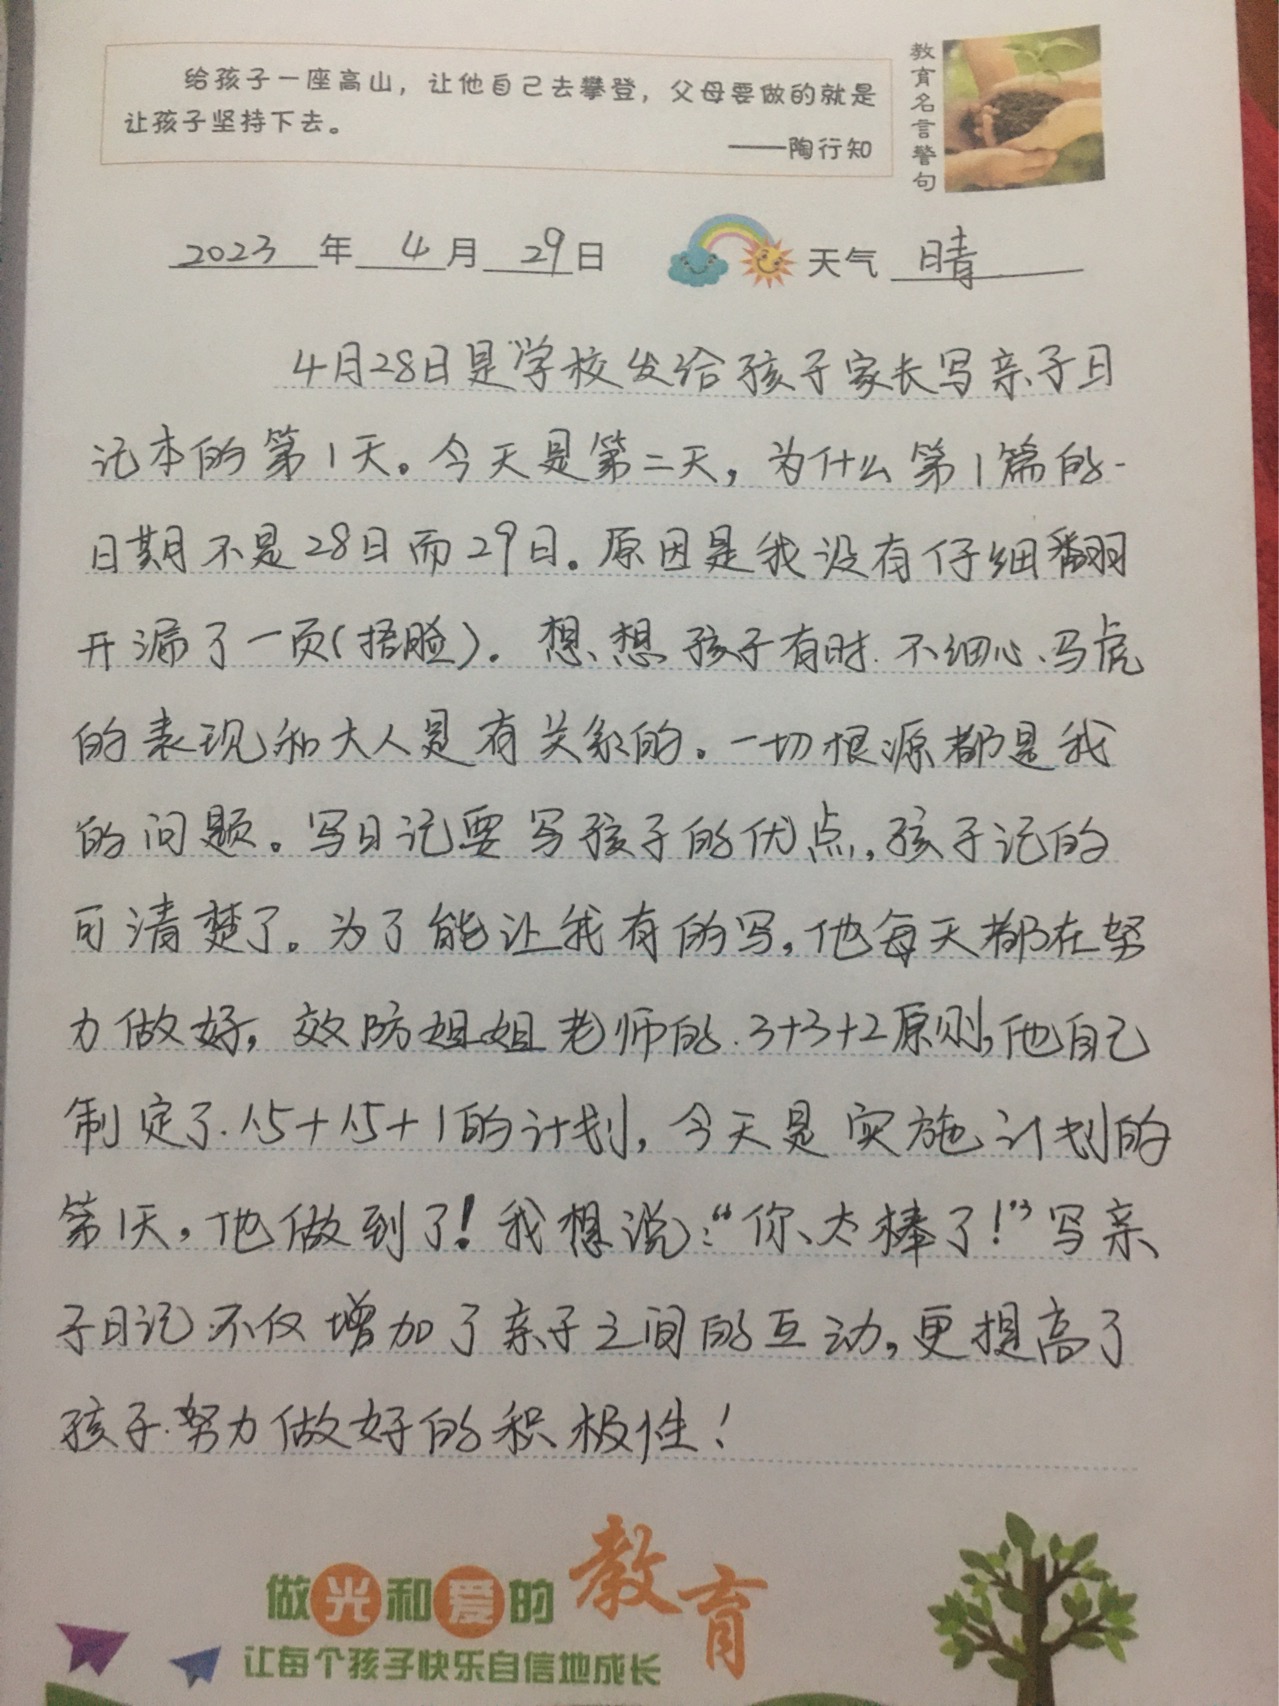 给孩子一座高山，让他自己去攀登，父母要做的就是
让孩子坚持下去。
——陶行知
教育名言警句
2023年4月29日 天气 晴
4月28日是学校发给孩子家长写亲子日
记本的第1天。今天是第二天，为什么第1篇的
日期不是28日而29日。原因是我没有仔细翻
开漏了一页（捂脸）。想想孩子有时不细心、马虎
的表现和大人是有关系的。一切根源都是我
的问题。写日记要写孩子的优点，孩子记的
可清楚了。为了能让我有的写，他每天都在努
力做好，效防姐姐老师的3+3+2原则，他自己
制定了15+15+1的计划，今天是实施计划的
第1天，他做到了！我想说：“你太棒了！”写亲
子日记不仅增加了亲子之间的互动，更提高了
孩子努力做好的积极性！
做光和爱的教育
让每个孩子快乐自信地成长